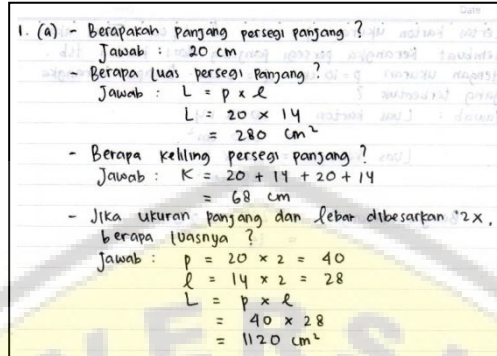 1. (a) - Berapakah panjang persegi panjang ?
Jawab : 20 cm
- Berapa luas persegi panjang ?
Jawab : L = p x l
L = 20 x 14
= 280 cm²
- Berapa keliling persegi panjang ?
Jawab : K = 20 + 14 + 20 + 14
= 68 cm
- Jika ukuran panjang dan lebar dibesarkan 2x,
berapa luasnya ?
Jawab : p = 20 x 2 = 40
l = 14 x 2 = 28
L = p x l
= 40 x 28
= 1120 cm²